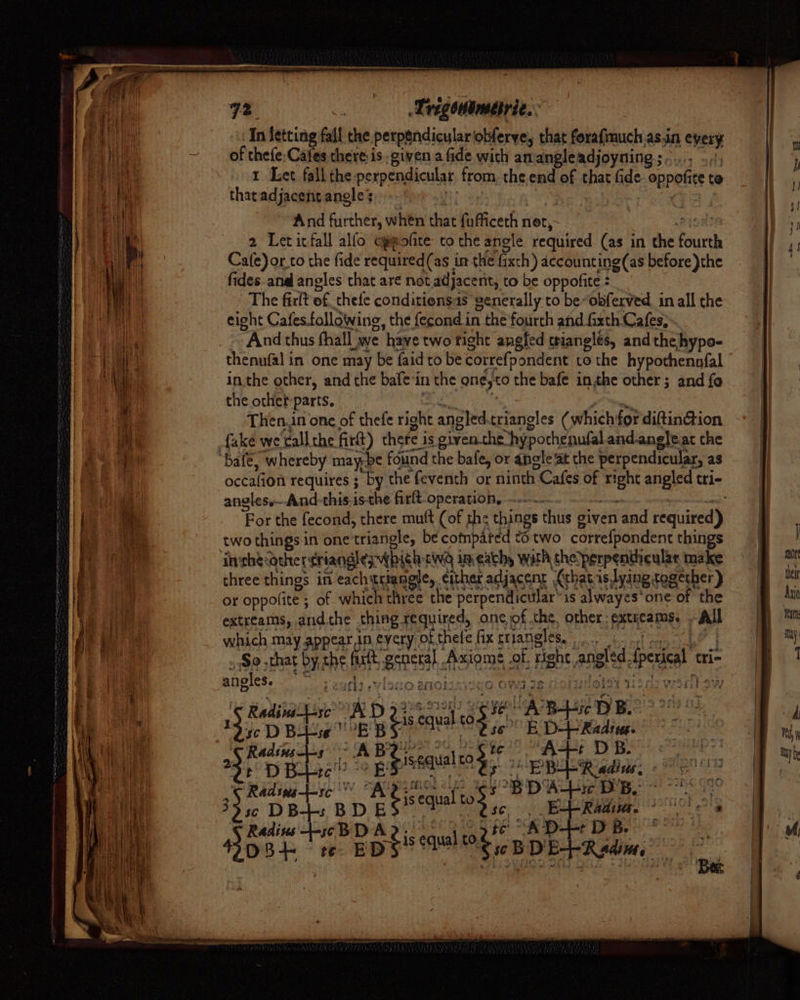 72 Trigonometrie.
In letting fall the perpendicular obſerve, that foraſmuch as in every
of theſe Caſes there is given a ſide with an angle adjoyning;
1 Let fall the perpendicular from the end of that ſide oppoſite to
that adjacent angle:
And further, when that ſufficeth not,
2 Let it fall alſo oppoſite to the angle required (as in the fourth
Caſe) or to the ſide required (as in the ſixth) accounting (as before) the
ſides and angles that are not adjacent, to be oppoſite:
The firſt of theſe conditions is generally to be obſerved in all the
eight Caſes following, the ſecond in the fourth and ſixth Caſes.
And thus ſhall we have two right angled triangles, and the hypo-
thenuſal in one may be ſaid to be correſpondent to the hypothenuſal
in the other, and the baſe in the one, to the baſe in the other; and ſo
the other parts.
Then in one of theſe right angled triangles (which for diſtinction
ſake we call the firſt) there is given the hypothenuſal and angle at the
baſe, whereby may be found the baſe, or angle at the perpendicular, as
occaſion requires; by the ſeventh or ninth Caſes of right angled tri-
angles. And this is the firſt operation.
For the ſecond, there muſt (of the things thus given and required)
two things in one triangle, be compared to two correſpondent things
in the other triangle; which two in each, with the perpendicular make
three things in each triangle, either adjacent (that is lying together)
or oppoſite; of which three the perpendicular is alwayes one of the
extreams, and the thing required, one of the other extreams. All
which may appear in every of theſe ſix triangles.
So that by the firſt general Axiome of right angled ſperical tri-
angles.
1 { Radius + sc A D / sc D B + se E B } is equal to { se A B + sc D B. / sc E D + Radius.
2 { Radius + s A B / t D B + tc E } is equal to { tc A + t D B. / s E B + Radius.
3 { Radius + sc A / sc D B + s B D E } is equal to { s B D A + sc D B. / sc E + Radius.
4 { Radius + sc B D A / t D B + tc E D } is equal to { tc A D + t D B. / sc B D E + Radius.
But